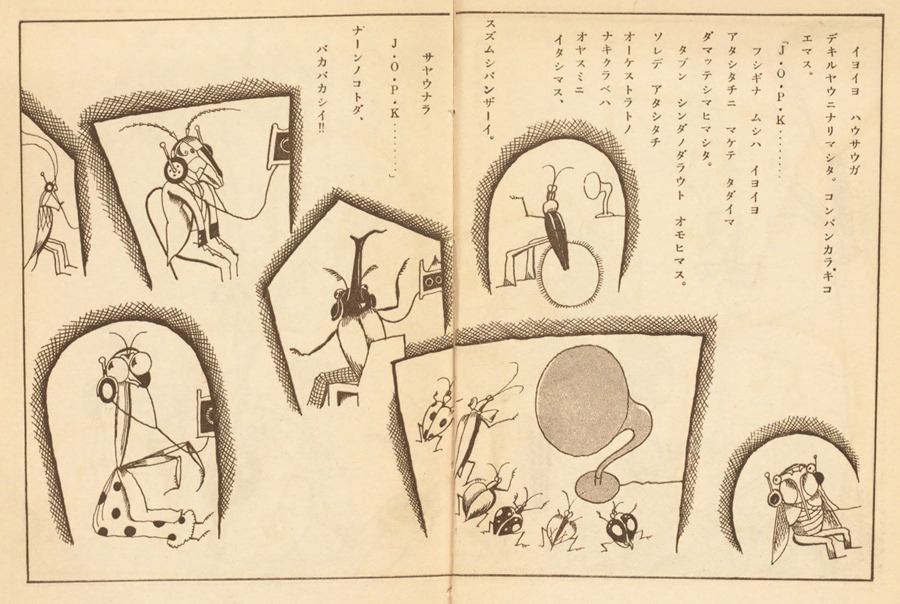 イヨイヨ ハウサウガ
デキルヤウニナリマシタ。 コンバンカラ キコ
エマス。
「J・O・P・K.......
フシギナ ムシハ イヨイヨ
アタシタチニ マケテ タダイマ
ダマッテシマヒマシタ。
タブン シンダノダラウト オモヒマス。
ソレデ アタシタチ
オーケストラトノ
ナキクラベハ
オヤスミニ
イタシマス、
スズムシバンザーイ。
サヤウナラ
J・O・P・K.......」
ナーンノコトダ、
バカバカシイ!!